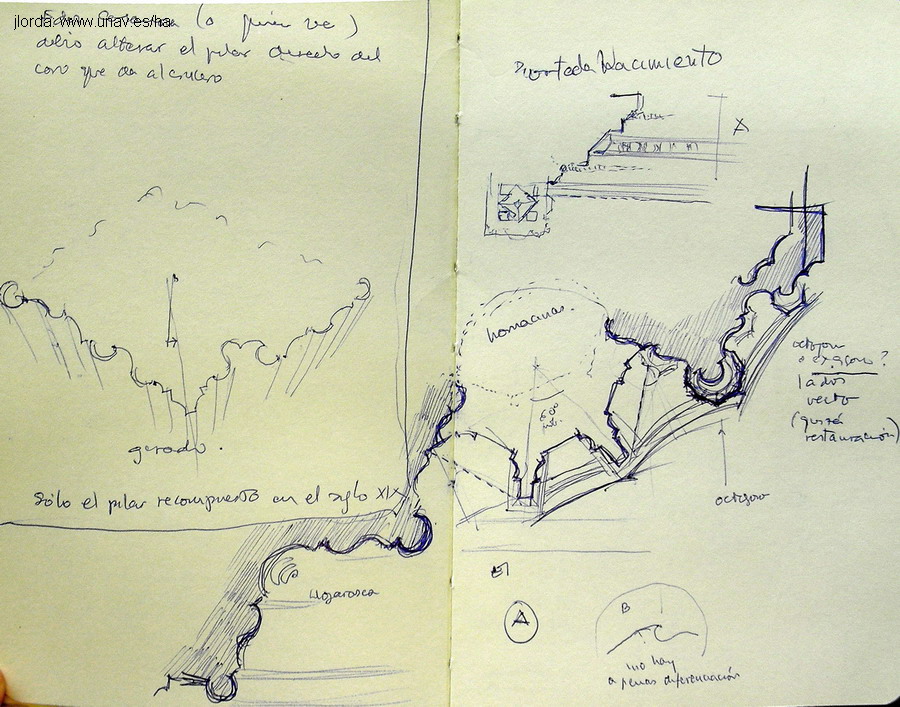 jlorda: www.unav.es/ha
(o quien ve)
debió alterar el pilar derecho del
coro que da al crucero
girado.
Sólo el pilar recompuesto en el siglo XIX
Hojarasca
Nacimiento
A
hornacinas.
60º
octógono
o exágono?
lados
recto
(quizá
restauración)
octógono
A
B
no hay
apenas diferenciación